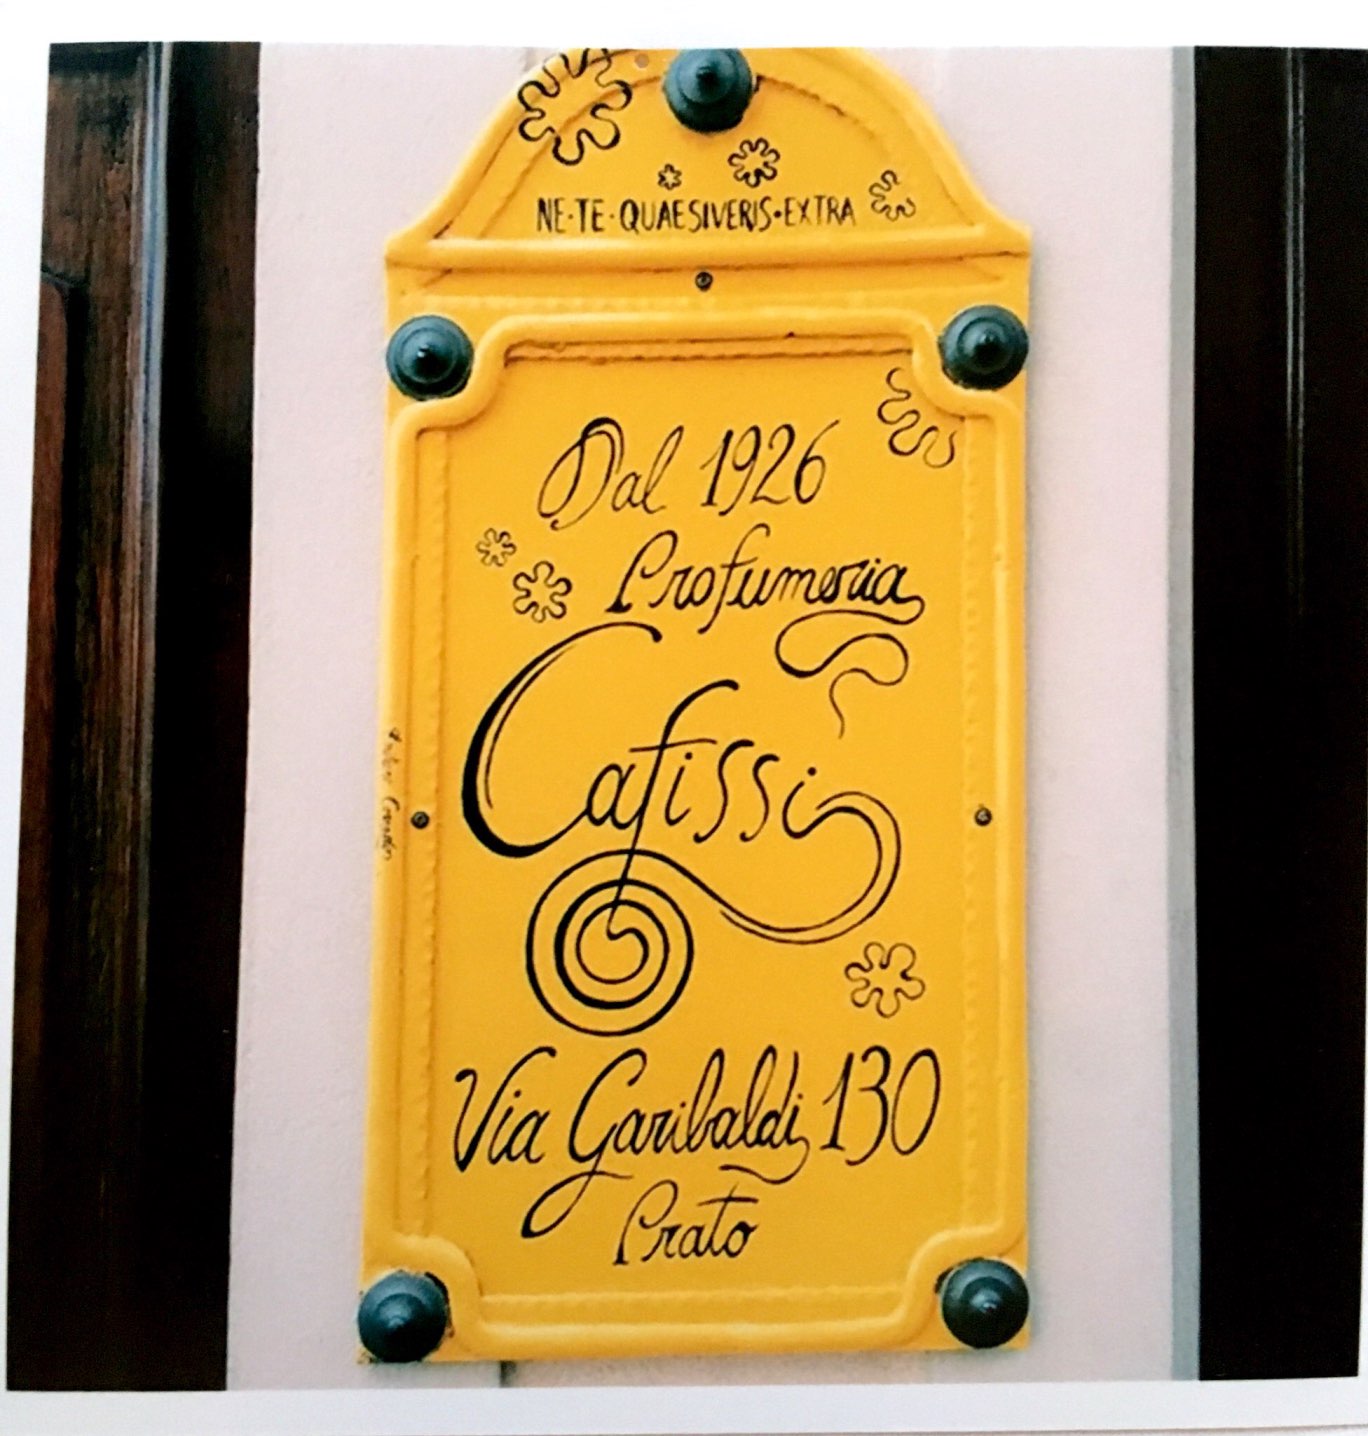 NE·TE·QUAESIVERIS·EXTRA
Dal 1926
Profumeria
Cafissi
Via Garibaldi 130
Prato